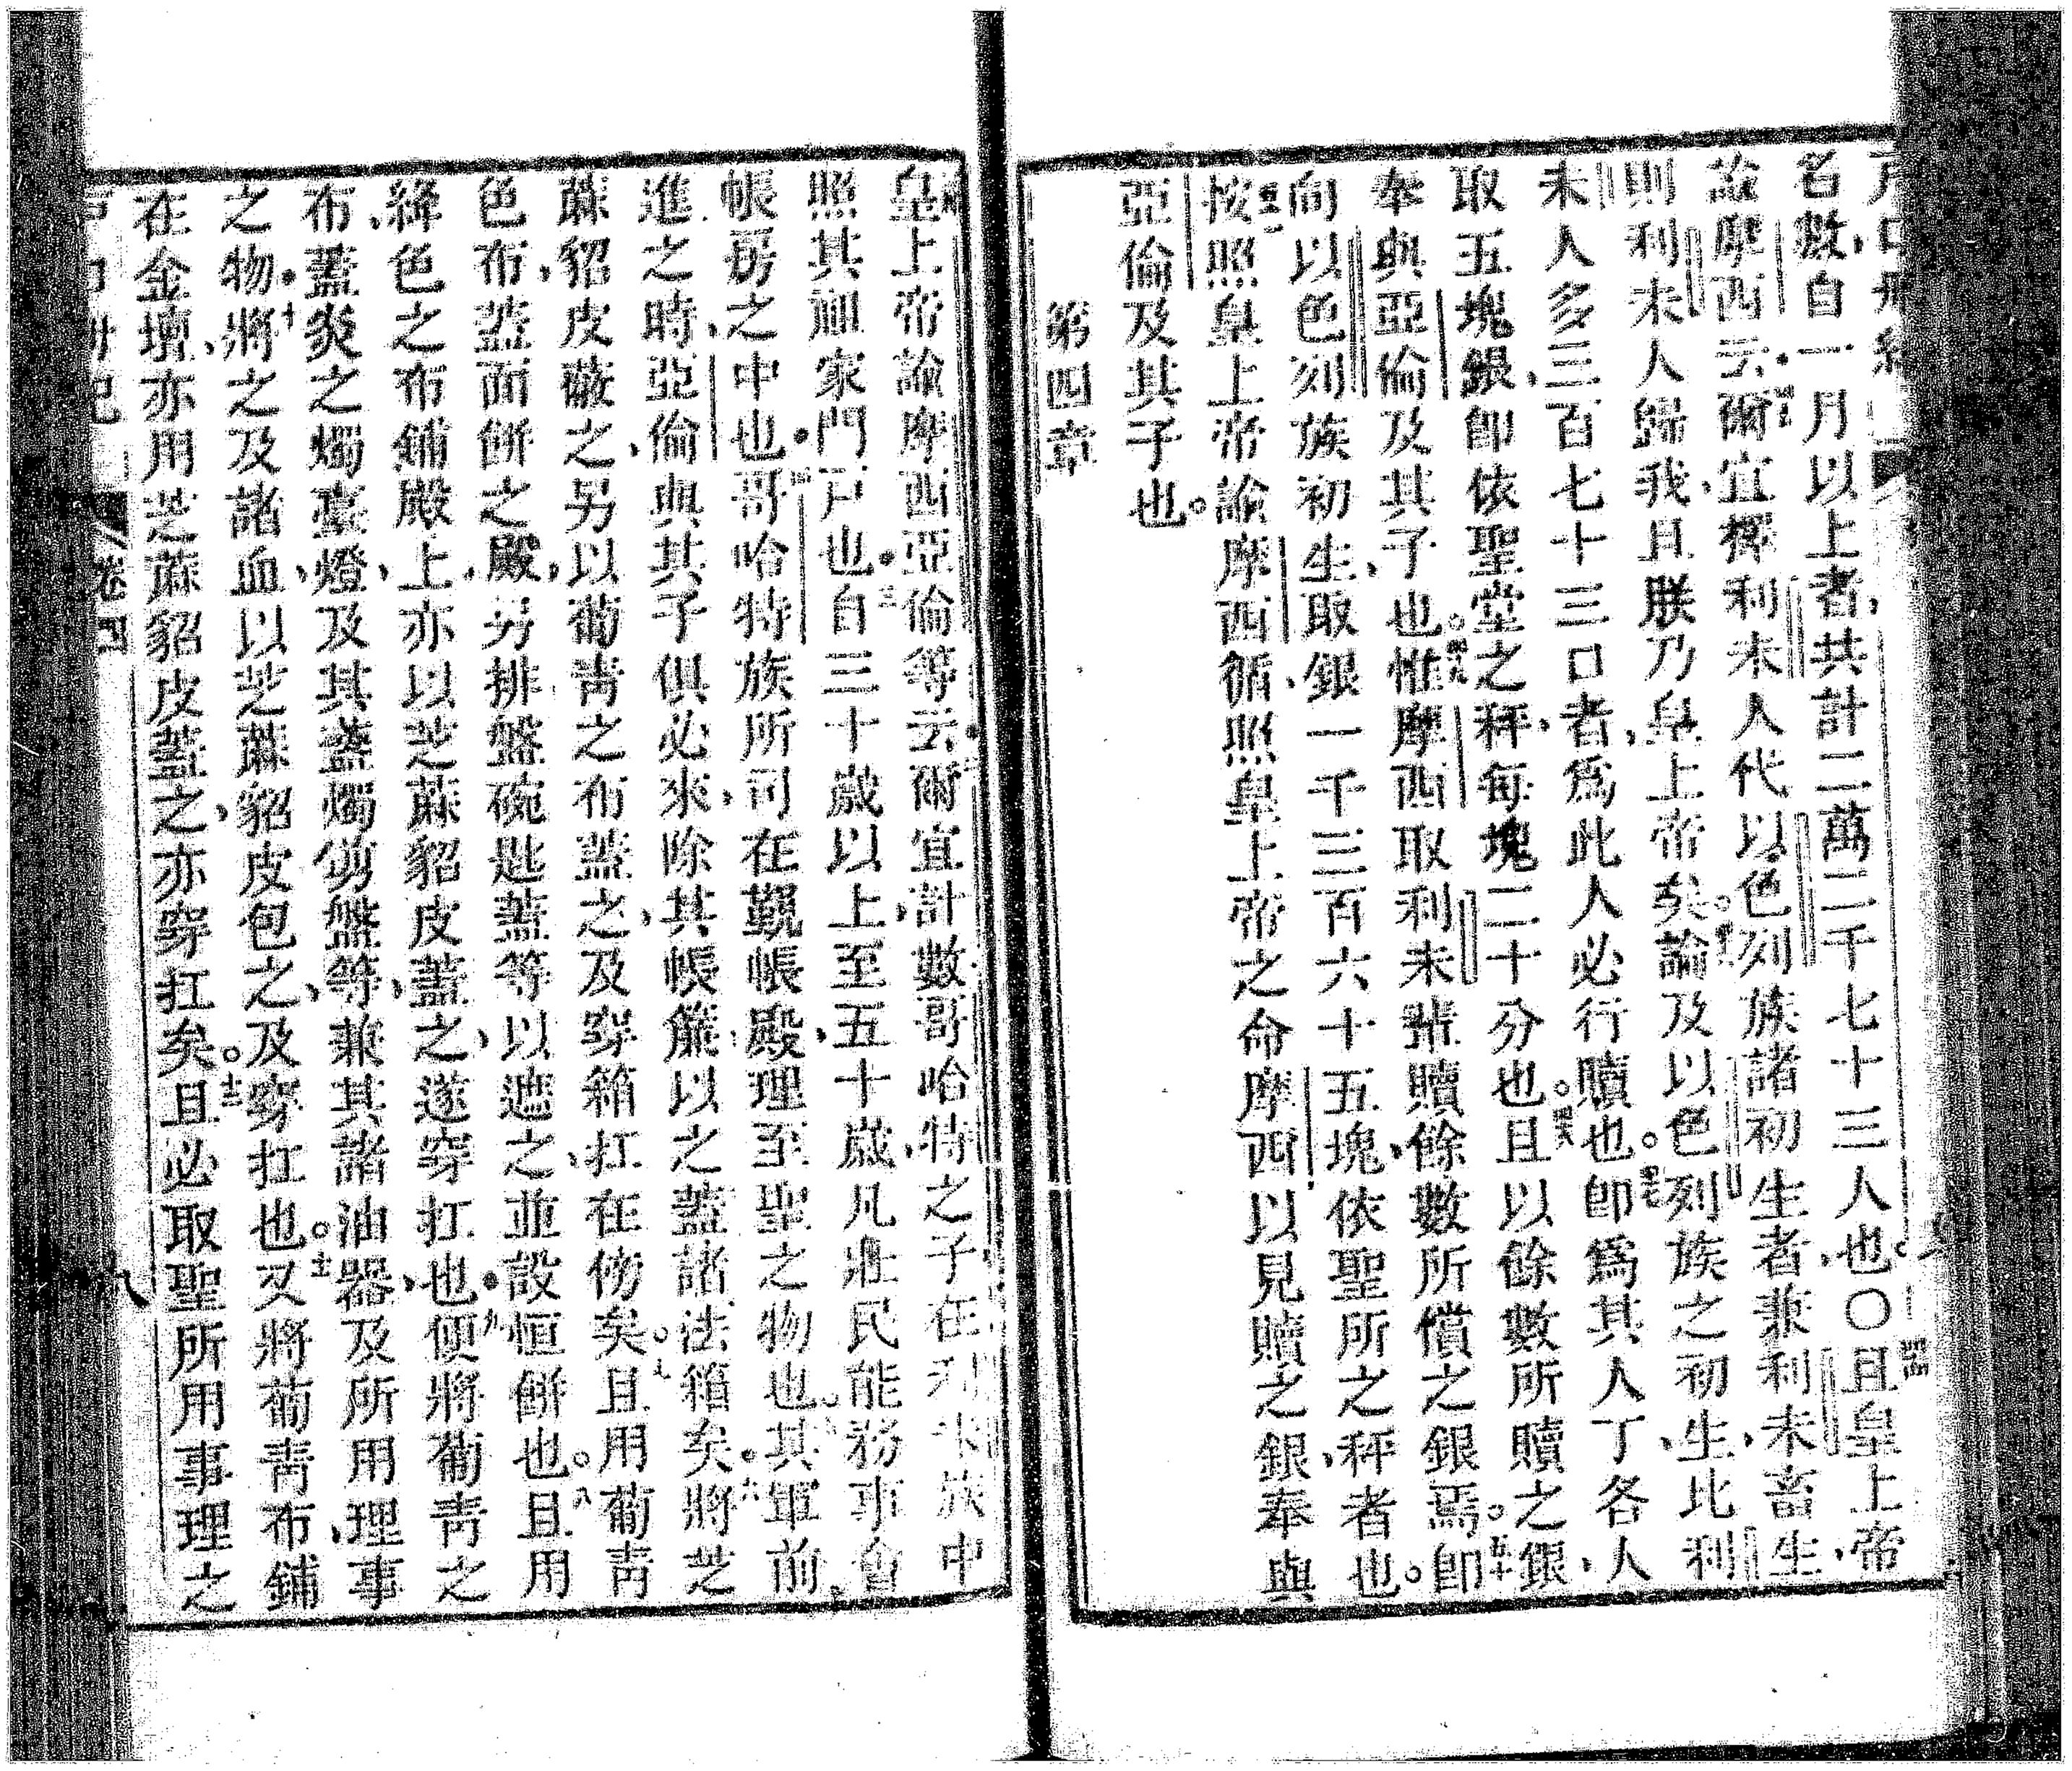 名數、自一月以上者、共計二萬二千七十三人也。〇且皇上帝
諭摩西云、爾宜擇利未人代以色列族諸初生者、兼利未畜生、
則利未人歸我、且朕乃皇上帝矣。諭及以色列族之初生、比利
未人多三百七十三口者、爲此人必行贖也。卽爲其人丁各人
取五塊銀、卽依聖堂之秤、每塊二十分也。且以餘數所贖之銀、
奉與亞倫及其子也。惟摩西取利未輩贖餘數所償之銀焉。卽
向以色列族初生、取銀一千三百六十五塊、依聖所之秤者也。
按照皇上帝諭摩西、循照皇上帝之命、摩西以見贖之銀、奉與
亞倫及其子也。
第四章
皇上帝諭摩西亞倫等云、爾宜計數哥哈特之子、在利未族中
照其祖家門戸也。自三十歲以上、至五十歲、凡壯民能務事會
帳房之中也。哥哈特族所司在覲帳殿、理至聖之物也。其軍前
進之時、亞倫與其子俱必來、除其帳簾、以之蓋諸法箱矣。將芝
蔴貂皮蔽之、另以葡青之布蓋之、及穿箱扛在傍矣。且用葡青
色布、蓋面餅之殿、另排盤碗匙蓋等、以遮之、並設恒餅也。且用
絳色之布鋪殿上、亦以芝蔴貂皮蓋之、遂穿扛也。便將葡青之
布、蓋炎之燭臺燈、及其盞燭剪盤等、兼其諸油器、及所用理事
之物。將之及諸血以芝蔴貂皮包之、及穿扛也。又將葡青布、鋪
在金壇、亦用芝蔴貂皮蓋之、亦穿扛矣。且必取聖所用事理之
卷四
八